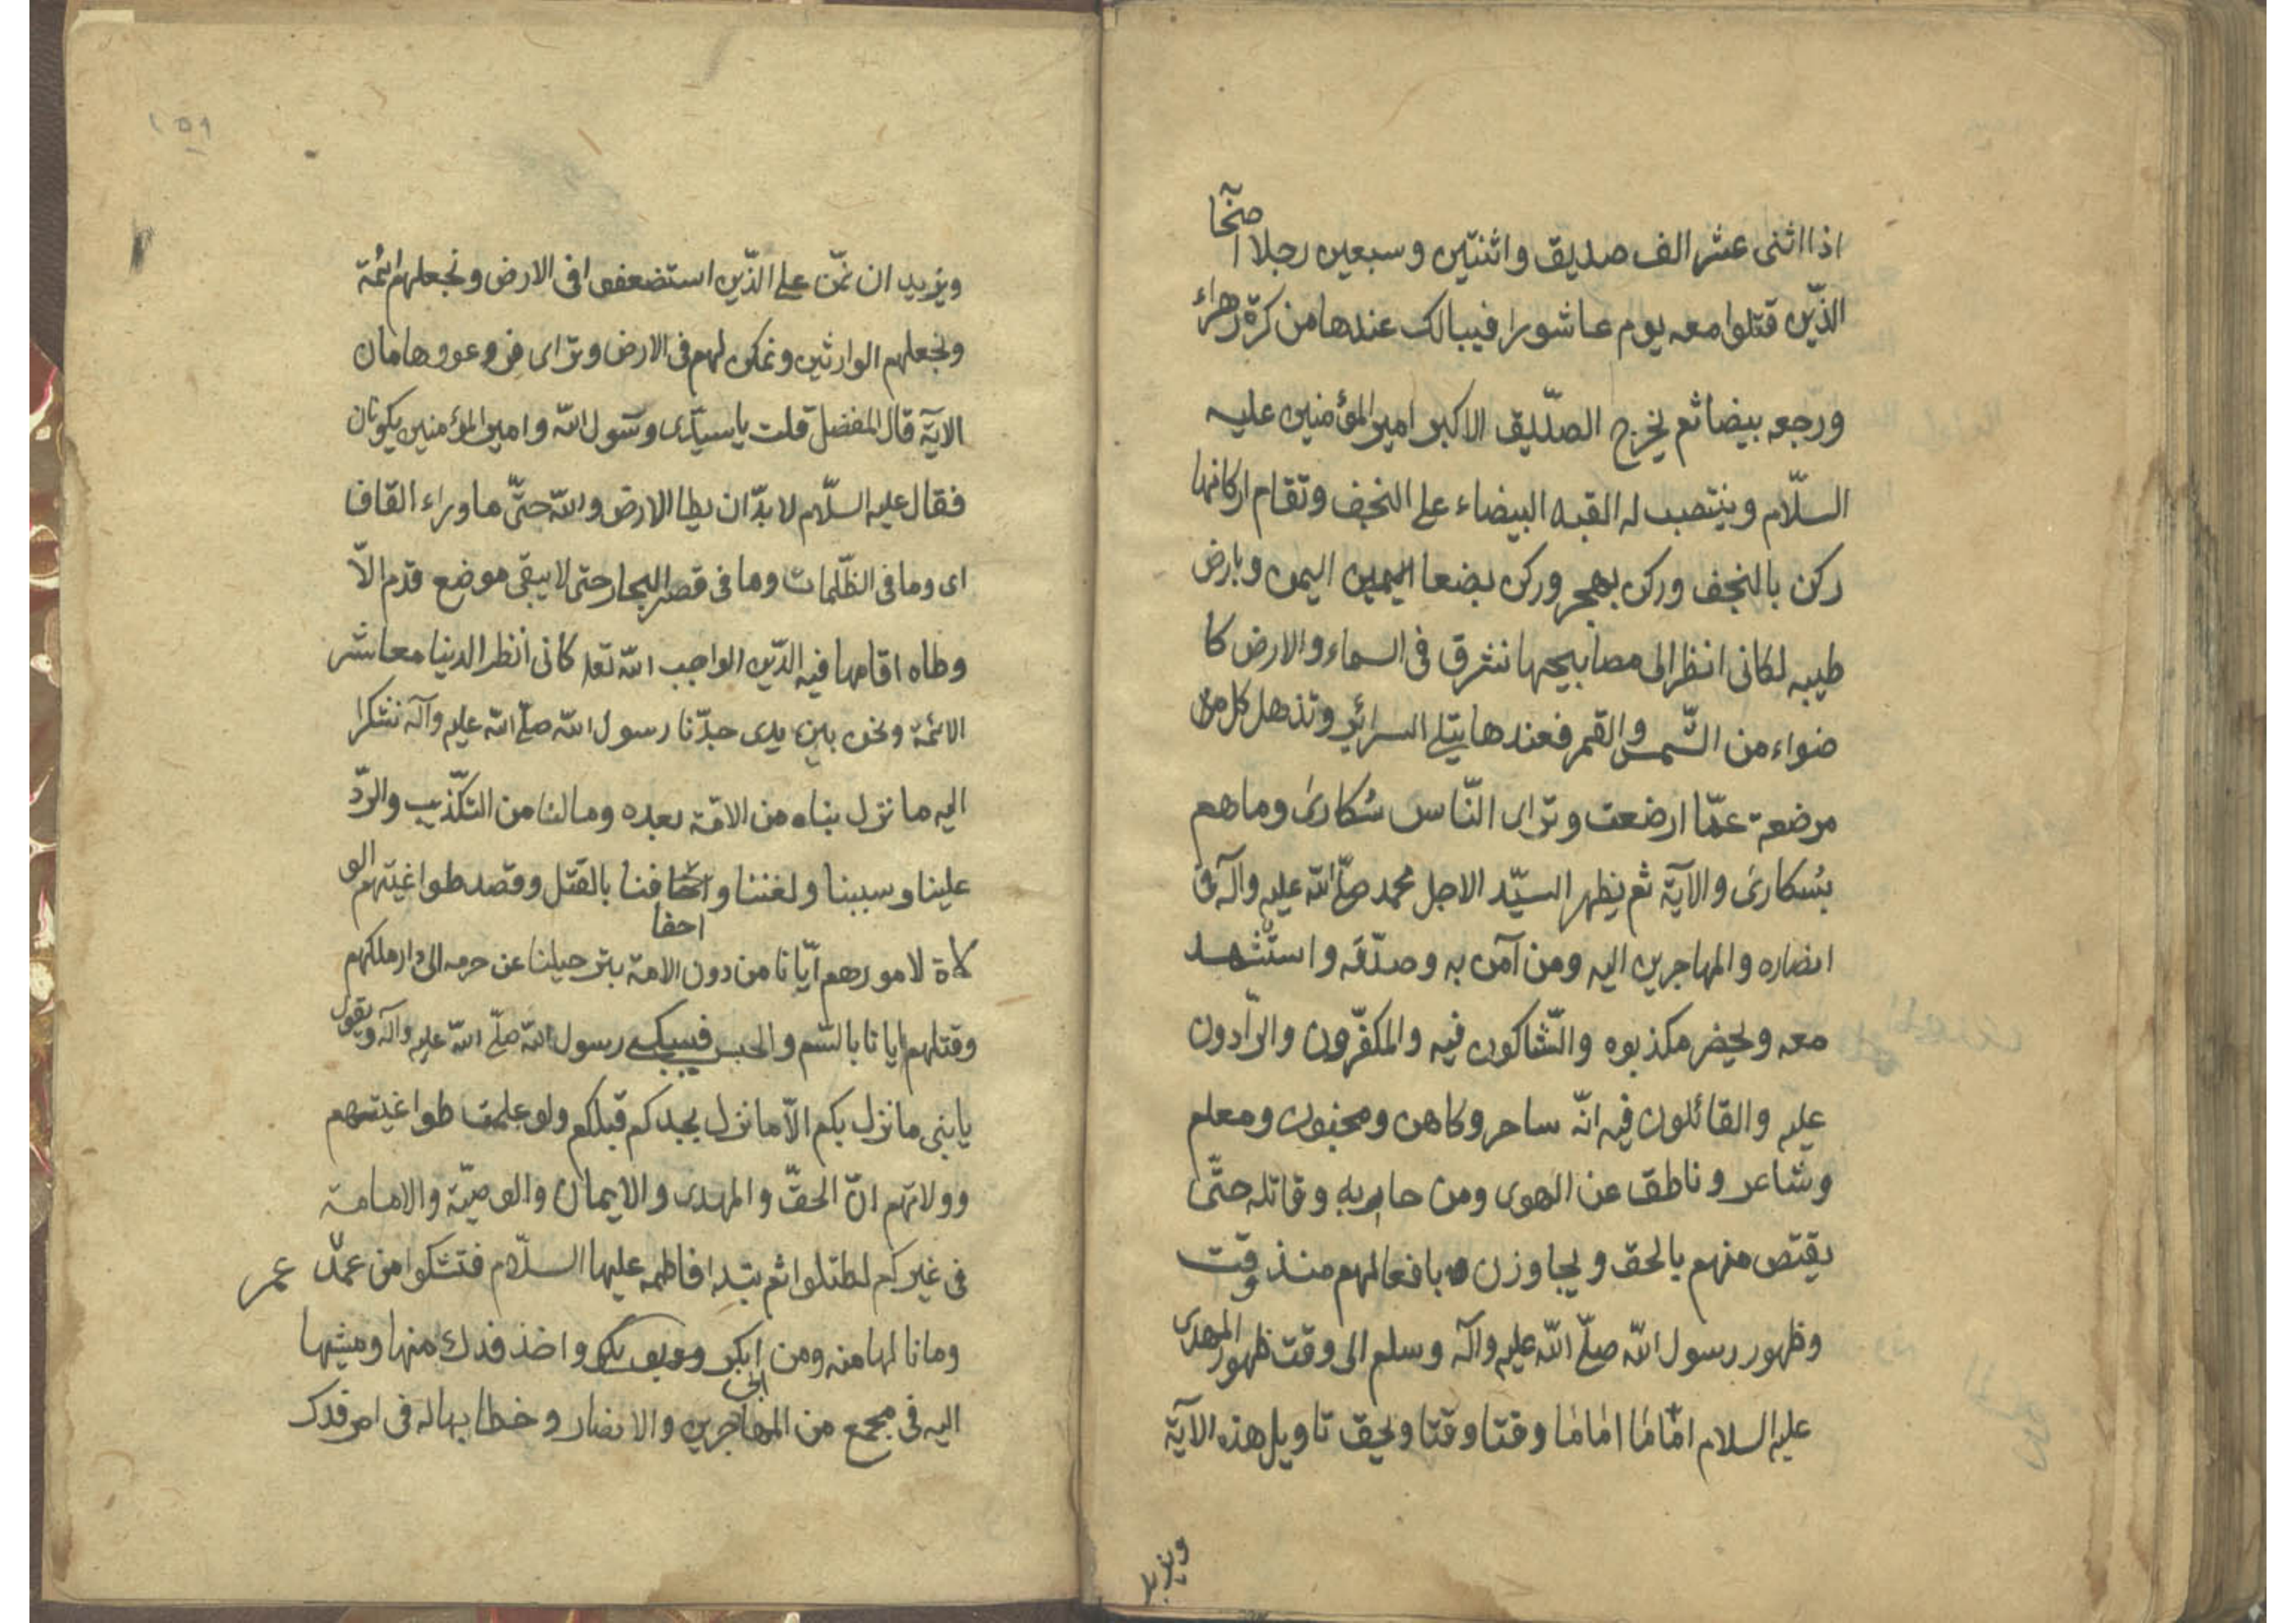 اذا اثنى عشر الف صديق واثنتين وسبعين رجلا اصحا
الذّين قتلوا معه يوم عاشورا فيبالك عندها من كرّة زهراء
ورجعه بيضا ثم يخرج الصدّيق الاكبر امير المؤمنين عليه
السلّام وينتصب له القبه البيضاء على النجف وتقام اركانها
ركن بالنجف وركن بهجر وركن بضعا اليمين اليمن وبارض
طيبه لكانى انظر الى مصابيحها نشرق فى السماء والارض كا
ضواء من الشّمس والقمر فعندها يتبلے السرائر وتذهل كل من
مرضعة عمّا ارضعت وتراى النّاس سُكارىٰ وما هم
بسُكارىٰ والآية ثم يظهر السيّد الاجل محمد صلّے الله عليه وآله فى
انصاره والمهاجرين اليه ومن آمن به وصدّقه واستشهد
معه ويحضر مكذبوه والشّاكون فيه والمكفّرون والرّادون
عليه والقائلون فيه انّه ساحر وكاهن ومجنون ومعلم
وشاعر وناطق عن الهوى ومن حاربه وقاتله حتّى
يقتص منهم بالحق ويجاوزن بافعالهم منذ وقت
وظهور رسول الله صلّے الله عليه وآله وسلم الى وقت ظهور المهدى
عليه السلام امّاما امٰامٰا وقتا وقتا ويحق تاويل هذه الآية
ويزيد
١٥٩
ويزيد ان نمّن على الذّين استضعفوا فى الارض ونجعلهم ائمة
ونجعلهم الوارثين ونمكن لهم فى الارض وتراى فروعون وهامان
الاية قال المفضل قلت يا سيّدى ورسول الله وامير المؤمنين يكونان
فقال عليه السلّام لا بدّ ان يطا الارض والله حتّى ما وراء القافا
اى وما فى الظّلمات وما فى قصر البحار حتى لا يبقى موضع قدم الاّ
وطاه اقامها فيه الدّين الواجب الله تعه كانى انظر الدنيا معاشر
الائمة ونحن بين يدى جدّنا رسول الله صلّے الله عليه وآله نشكرا
اليه ما نزل بناه من الامّة بعده وما لنا من التكّذيب والردّ
علينا وسببنا ولغننا واخافنا بالقتل وقصد طواغيتهم الو
احفا
لاة لامورهم ايّانا من دون الامة بتر حيلنا عن حرمه الى دار ملكهم
وقتلهم ايانا بالسّم والحبس فسيبكے رسول الله صلّے الله عليه وآله ويقول
يا بنى ما نزل بكم الاّ ما نزل بجدكم قبلكم ولو علمت طواغيتهم
وولاتهم انّ الحقّ والمهدى والايمان والوصيّة والامامة
فى غيركم لطتلوا ثم بتدا فاطمه عليها السلّام فتشكوا من عمر عمر
وما نالها منه ومن ابكر واخذ فدك منها ومشيها
ابى
اليه فى مجمع من المهاجرين والانصار وخطابها له فى امر فدك